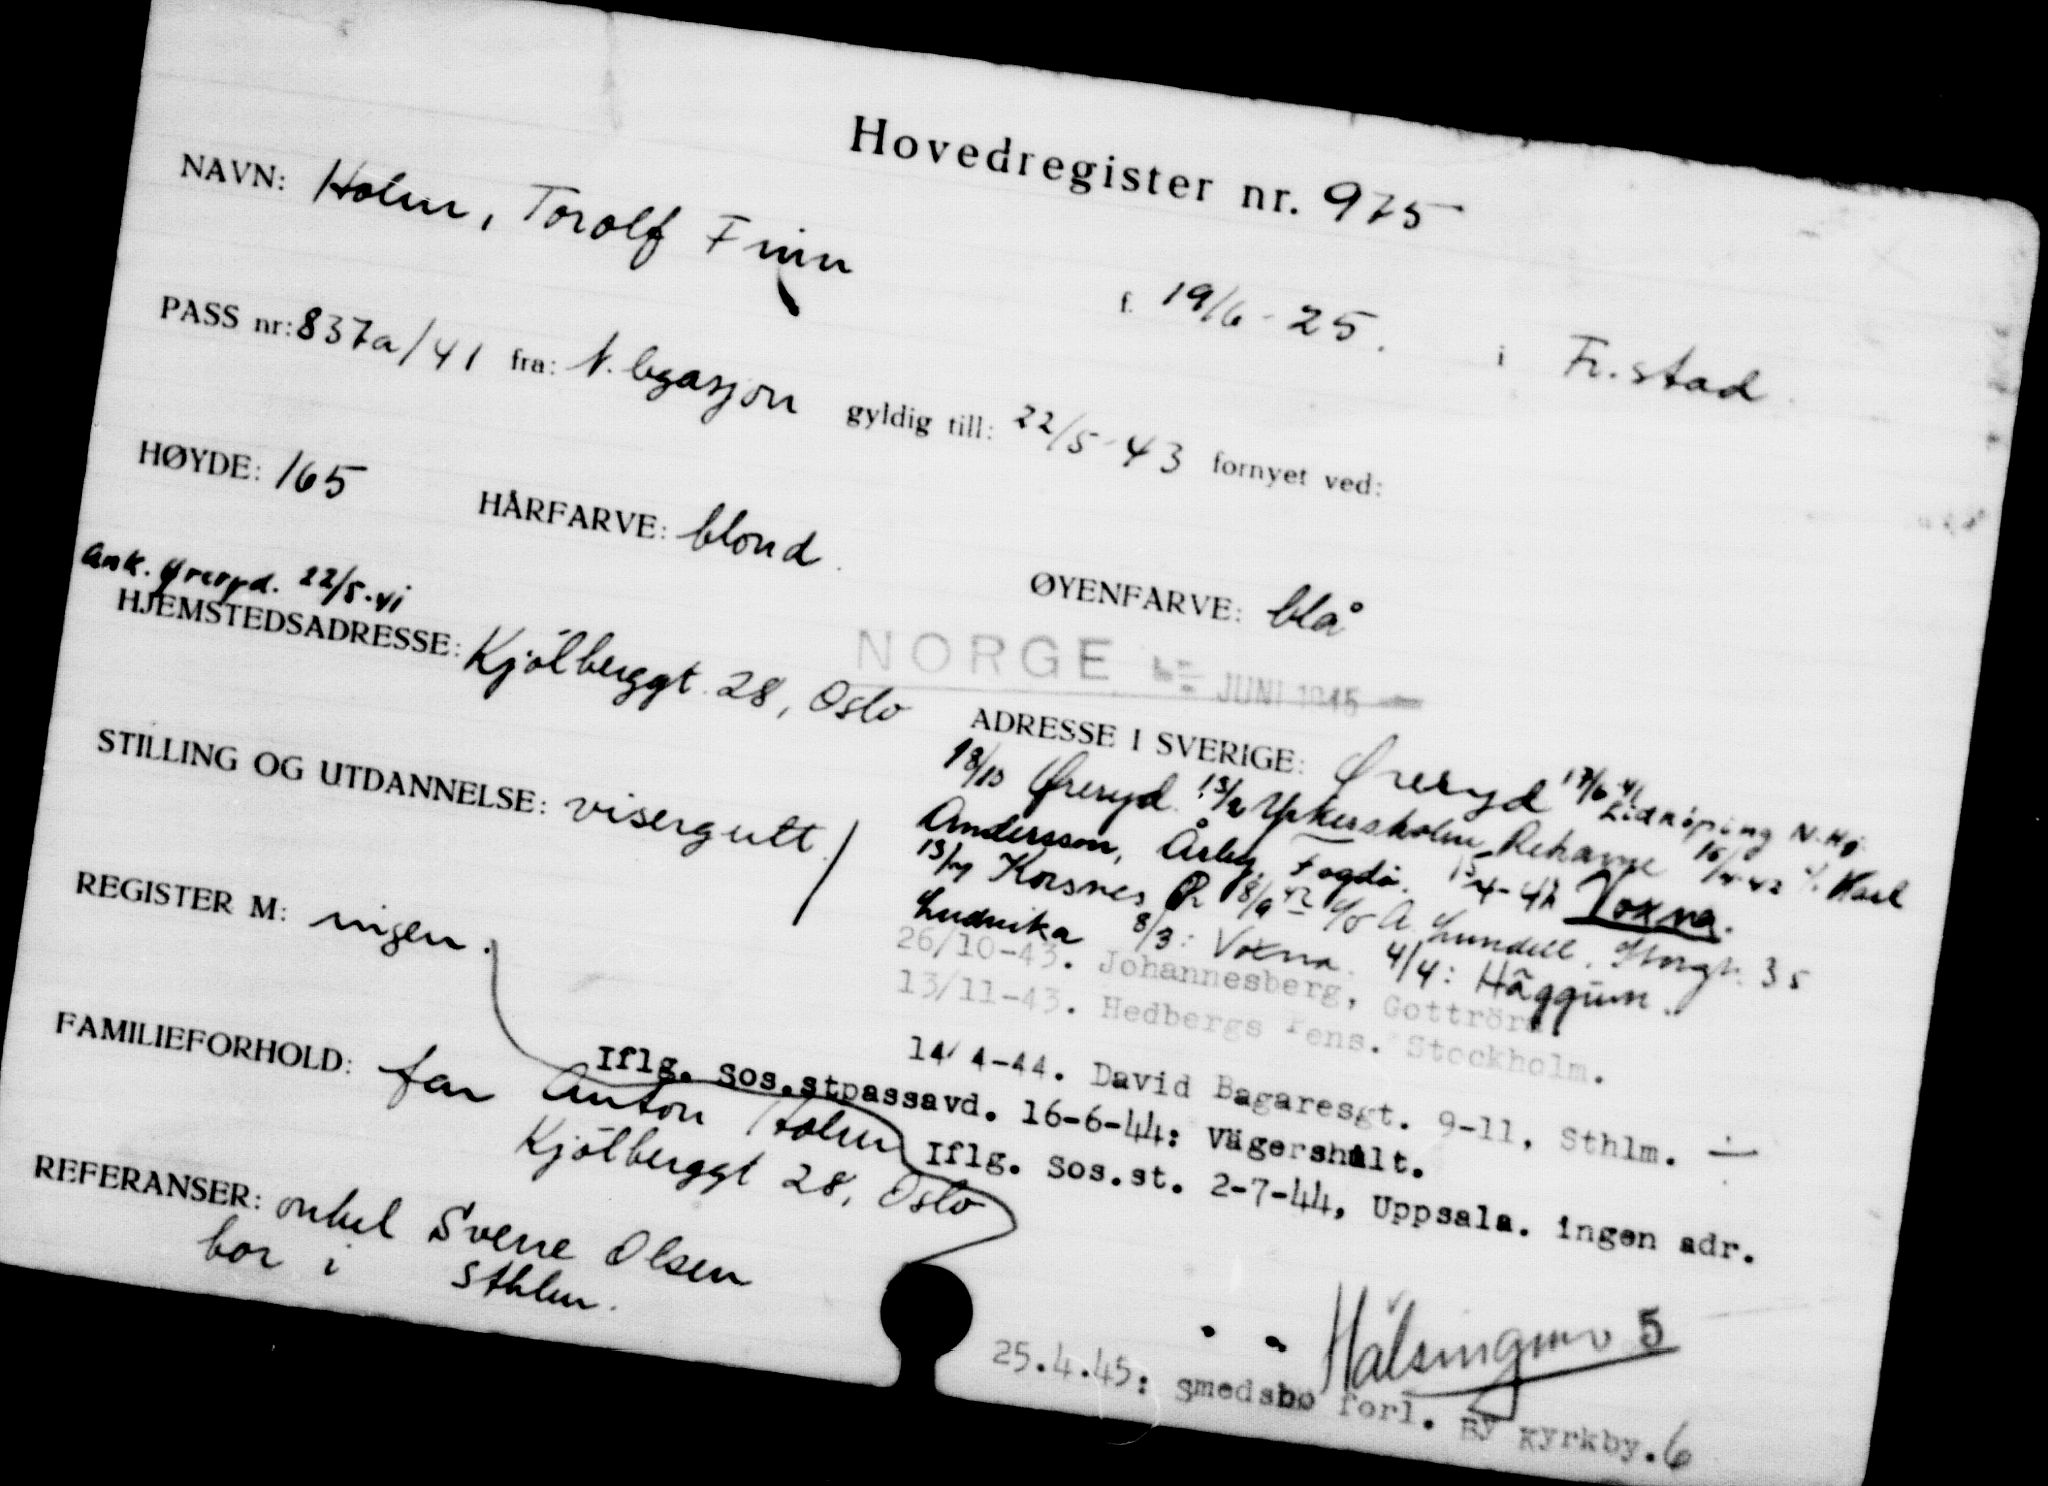 Hovedregister nr. 975
NAVN: Holm, Torolf Finn
f. 19/6-25. i Fr.stad
PASS nr: 837a/41 fra: N. legasjon gyldig till: 22/5-43 fornyet ved:
HØYDE: 165 HÅRFARVE: blond. ØYENFARVE: blå
Ank. Øreryd. 22/5-41
HJEMSTEDSADRESSE: Kjölberggt. 28, Oslo
NORGE JUNI 1945
STILLING OG UTDANNELSE: visergutt.
REGISTER M: ingen.
FAMILIEFORHOLD: far Anton Holm
Kjölberggt 28, Oslo
REFERANSER: onkel Sverre Olsen
bor i Sthlm.
ADRESSE I SVERIGE: Øreryd 17/6-41 Lidköping N.Hj.
18/10 Øreryd. 13/2 Rekarne 16/4-42 c/o Karl
Andersson, Årby, Fogdö. 4-42 Voxna.
Korsnes 8/9 42 c/o A. Lundell, Storgt. 35
Ludvika 8/3: Voxna. 4/4: Häggum.
26/10-43. Johannesberg, Gottröra
13/11-43. Hedbergs Pens. Stockholm.
14/4-44. David Bagaresgt. 9-11, Sthlm.
Iflg. Sos.stpassavd. 16-6-44: Vägershult.
Iflg. Sos.st. 2-7-44, Uppsala. ingen adr.
" " Hälsingmo 5
25.4.45: Smedsbo forl. By Kyrkby. 6